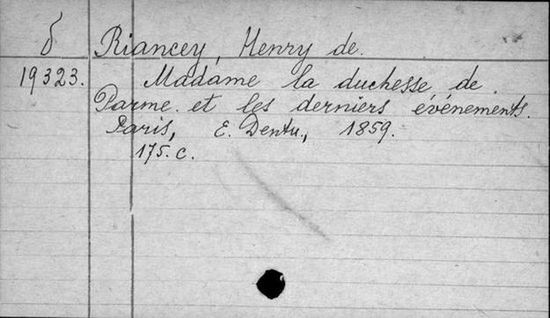 δ Riancey, Henry de.
19323. Madame la duchesse de
Parme et les derniers événements.
Paris, E. Dentu., 1859.
175.c.